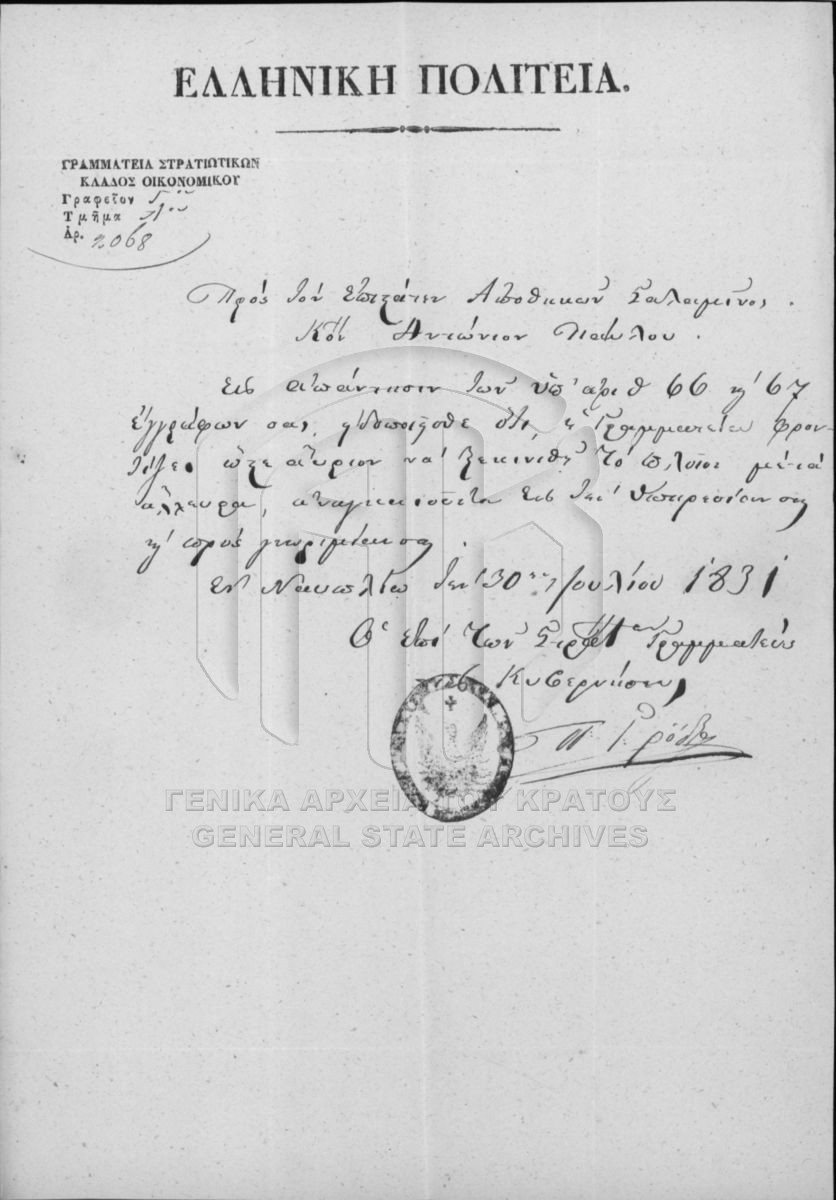 ΕΛΛΗΝΙΚΗ ΠΟΛΙΤΕΙΑ.
ΓΡΑΜΜΑΤΕΙΑ ΣΤΡΑΤΙΩΤΙΚΩΝ
ΚΛΑΔΟΣ ΟΙΚΟΝΟΜΙΚΟΥ
Γραφεῖον
Τμῆμα
Ἀρ. 2068
Πρός τόν Ἐπιστάτην Ἀποθηκῶν Σαλαμῖνος.
Κον Ἀντώνιον Παύλου.
Εἰς ἀπάντησιν τῶν ὑπ' ἀριθ 66 κ' 67
ἐγγράφων σας, εἰδοποιεῖσθε ὅτι, ἡ Γραμματεία φρον-
τίζει ὥστε αὔριον νά ξεκινηθῇ τό πλοῖον μέ τά
ἄλευρα, ἀναγκαιοῦντα εἰς τήν ὑπηρεσίαν σας
κ' πρός γνωριμίαν σας.
Ἐν Ναυπλίῳ τήν 30 Ἰουλίου 1831
Ὁ ἐπί τῶν Στρατ ων Γραμματεύς
τῆς Κυβερνήσεως
Π. Γ. Ρόδιος
ΓΕΝΙΚΑ ΑΡΧΕΙΑ ΤΟΥ ΚΡΑΤΟΥΣ
GENERAL STATE ARCHIVES